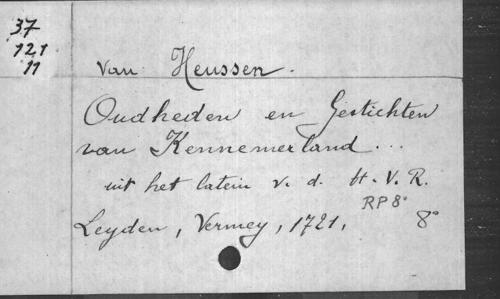 37
121
11
van Heussen.
Oudheden en Gestichten
van Kennemerland...
uit het latein v. d. H. V. R.
RP 8°
Leyden, Vermey, 1721, 8°